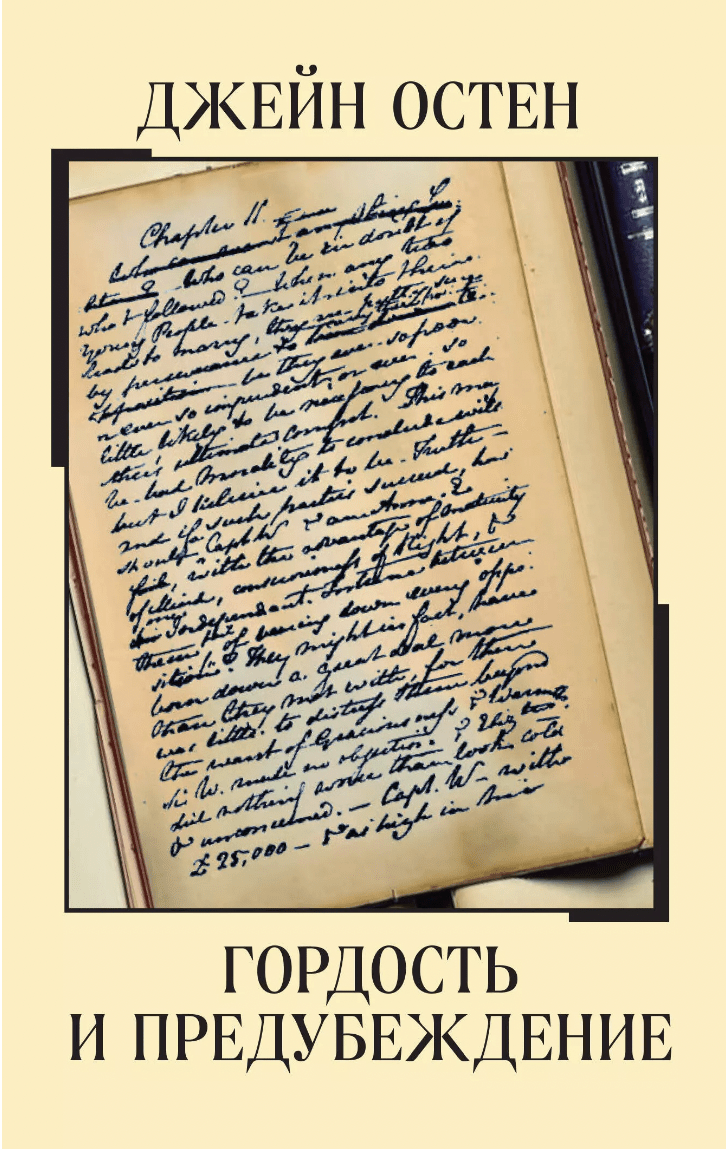 ДЖЕЙН ОСТЕН
Chapter 11.
Who can be in doubt of
what followed? When any two
young People take it into their
heads to marry, they are
by perseverance to
be they ever so poor
or ever so imprudent, or ever so
little likely to be necessary to each
other's ultimate comfort. This may
be bad Morality to conclude with
but I believe it to be Truth
and if such parties succeed, how
should Capt W & an Anne E
fail, with the advantage of maturity
of Mind, consciousness of Right, &
Independant Fortune between
them, of bearing down every oppo
sition? They might in fact, have
born down a great deal more
than they met with, for there
was little to distress them beyond
the want of Graciousness & Warmth.
Sir W. made no objection & Eliz
did nothing worse than look cold
& unconcerned. — Capt. W— with
£25,000 — & as high in his
ГОРДОСТЬ
И ПРЕДУБЕЖДЕНИЕ